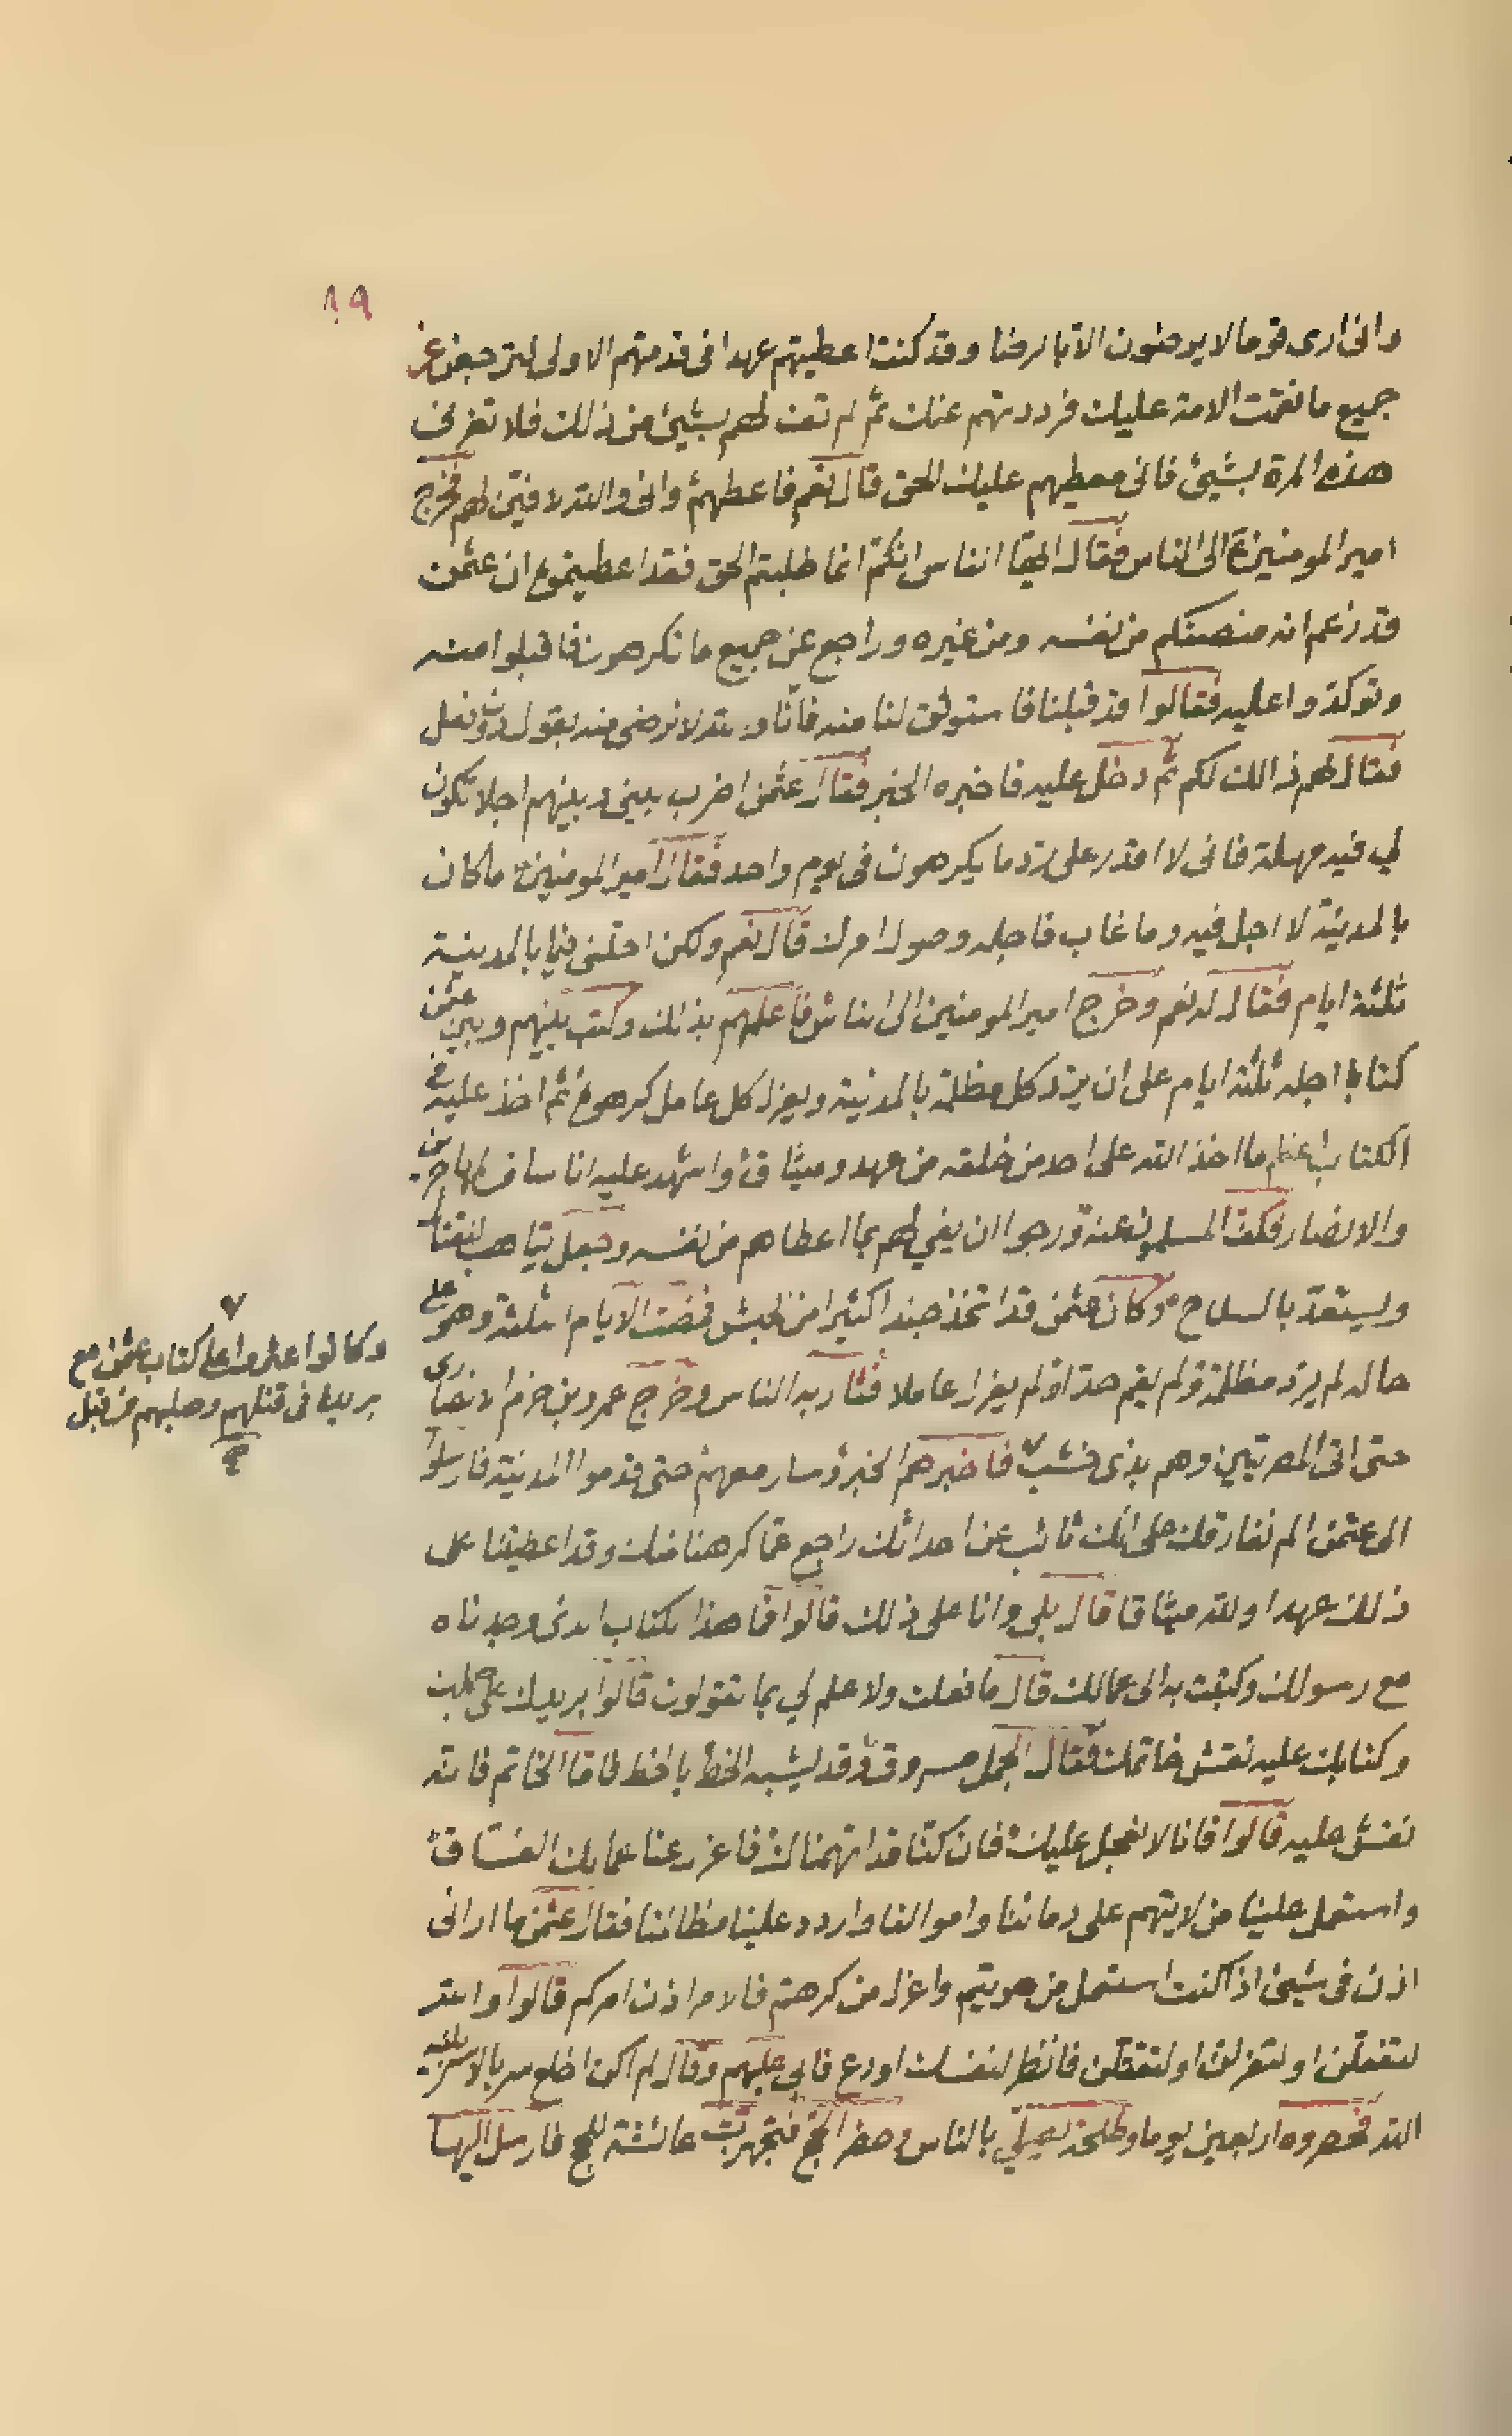 ٨٩
وانى ارى قوما لا يرضون الا بالرضا وقد كنت اعطيتهم عهدا فى قدمتهم الاولى لترجعن عن
جميع ما نقمت الامة عليك فرددتهم عنك ثم لم تف لهم بشيئ من ذلك فلا تغرنى
هذه المرة بشيئ فانى معطيهم عليك الحق قال نعم فاعطهم وانى والله لافين لهم فخرج
امير المومنين ع الى الناس فقال ايها الناس انكم انما طلبتم الحق فقد اعطيتموه ان عثمن
قد زعم انه منصفكم من نفسه ومن غيره وراجع عن جميع ما تكرهون فاقبلوا منه
وتوكدوا عليه فقالوا قد قبلنا فاستوثق لنا منه فانا والله لا نرضى منه بقول دون فعل
فقال لهم ذالك لكم ثم دخل عليه فاخبره الخبر فقال عثمن اضرب بينى وبينهم اجلا تكون
لي فيه مهلة فانى لا اقدر على رد ما يكرهون فى يوم واحد فقال امير المومنين ما كان
بالمدينة لا اجل فيه وما غاب فاجله وصول امرك قال نعم ولكن اجلنى فيما بالمدينة
ثلثة ايام فقال له نعم وخرج امير المومنين الى الناس فاعلمهم بذلك وكتب بينهم وبين عثمن
كتابا اجله ثلثة ايام على ان يرد كل مظلمة بالمدينة ويعزل كل عامل كرهوه ثم اخذ عليه فى
الكتاب اعظم ما اخذ الله على احد من خلقه من عهد وميثاق واشهد عليه اناسا من المهاجرين
والانصار فكف المسلمون عنه ورجوا ان يفي لهم بما اعطاهم من نفسه وجعل يتاهب للقتال
ويستعد بالسلاح وكان عثمن قد اتخذ جندا كثيرا من الحبش فمضت الايام الثلثة وهو على
حاله لم يرد مظلمة ولم يقم حدا ولم يعزل عاملا فثار به الناس وخرج عمرو بن حزم الانصارى
حتى اتى المصريين وهم بذى خشب فاخبرهم الخبر وسار معهم حتى قدموا المدينة فارسلوا
الى عثمن الم نفارقك على انك تائب عن احداثك راجع عما كرهنا منك وقد اعطيتنا على
ذلك عهدا ولله ميثاقا قال بلى وانا على ذلك قالوا فما هذا الكتاب الذى وجدناه
مع رسولك وكتبت به الى عمالك قال ما فعلت ولا علم لي بما تقولون قالوا بريدك على جملك
وكتابك عليه نقش خاتمك فقال الجمل مسروق وقد يشبه الخط بالخط فاما الخاتم فانه
نقش عليه قالوا فانا لا نعجل عليك فان كنا قد اتهمناك فاعزل عنا عمالك الفساق
واستعمل علينا من لا يتهم على دمائنا واموالنا واردد علينا مظالمنا فقال عثمن ما ارانى
اذن فى شيئ اذا كنت استعمل من هويتم واعزل من كرهتم فالامر اذن امركم قالوا والله
لتفعلن او لتعزلن او لتقتلن فانظر لنفسك او دع فابى عليهم وقال لم اكن اخلع سربالا سربلنيه
الله فحصروه اربعين يوما وطلحة يصلي بالناس وحضر الحج فتجهزت عائشة للحج فارسل اليها
وكانوا عثروا على كتاب عثمن مع
بريده فى قتلهم وصلبهم من قبل